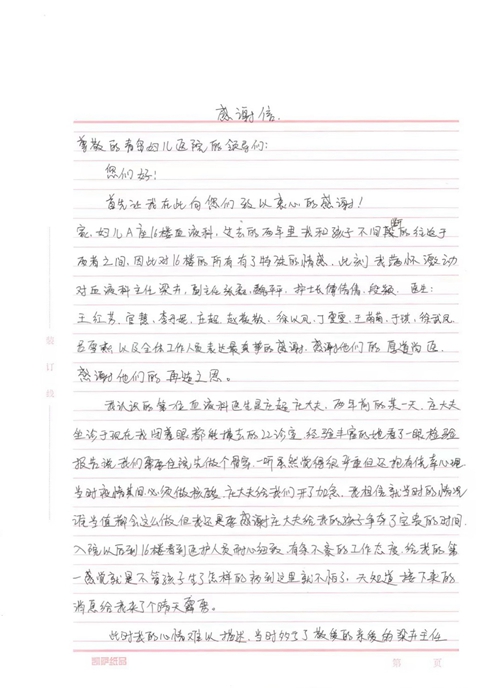 感谢信.
尊敬的青岛妇儿医院的领导们:
您们好!
首先让我在此向您们致以衷心的感谢!
家,妇儿A座16楼血液科,过去的两年里我和孩子不间断的往返于
两者之间,因此对16楼的所有有了特殊的情感,此刻我满怀激动
对血液科主任梁 副主任 护士长 医生:
王红芳、 李 庄超、赵 徐 丁 王 于 徐
以及全体工作人员表达最真挚的感谢,感谢他们的厚道尚医
感谢他们的再造之恩。
我认识的第一位血液科医生是庄超庄大夫,两年前的某一天,庄大夫
坐诊于现在我闭着眼都能摸去的22诊室,经验丰富的她看了一眼检验
报告说我们需要住院先做个骨穿,一听虽然觉得很严重但还抱有侥幸心理
当时疫情其间必须做核酸,庄大夫给我们开了加急,我相信就当时的情况
该当值都会这么做但我还是要感谢庄大夫给我的孩子争夺了宝贵的时间.
入院以后到16楼看到医护人员耐心细致,有条不紊的工作态度,给我的第
一感觉就是不管孩子生了怎样的病到这里就不怕了,天知道接下来的
消息给我来了个晴天霹雳。
此时我的心情难以描述,当时约了了敬爱的亲爱的梁 主任
装订线
第 页